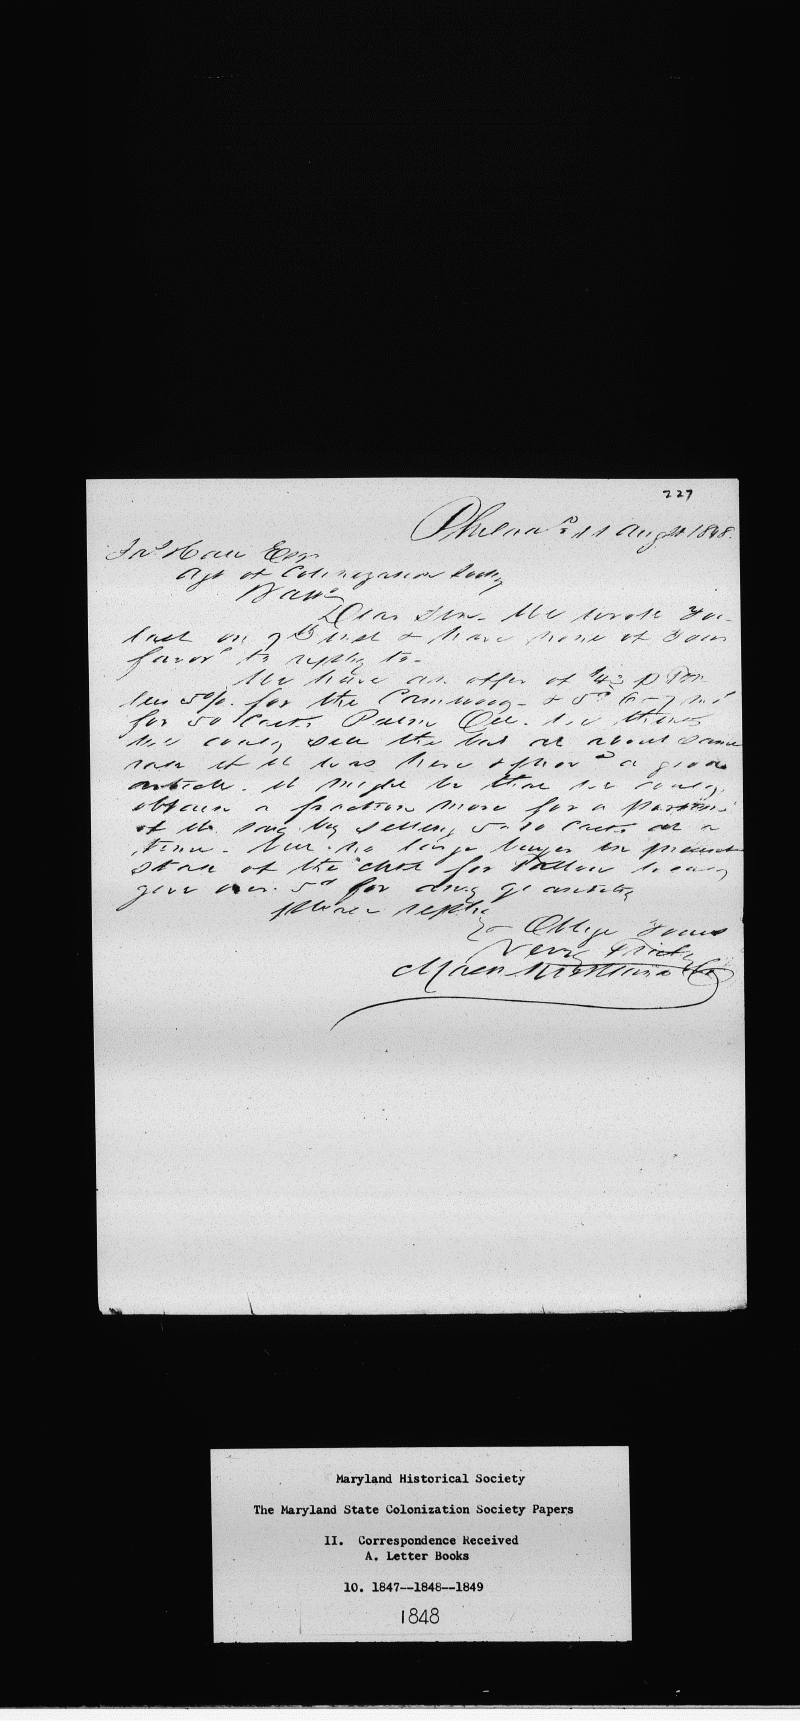 227
Philad.ª 11 Augst 1848.
Jas Hall Esqr
Agt of Colonization Socty
Balto
Dear Sir. We wrote you
last on 9th inst & have none of your
favors to reply to.
We have an offer of $43 p Ton
less 5%. for the Camwood &
for 50 Casks Palm Oil. we think
we could sell the bal at about same
rate if it was here & prov d a good
article. it might be that we could
obtain a fraction more for a portion
of it by selling 5 a 10 Casks at a
time. but no large buyer in present
state of the mkt for Tallow would
give over. 5d for any quantity
please reply
& Oblige Yours
Very Truly
& Co
Maryland Historical Society
The Maryland State Colonization Society Papers
II. Correspondence Received
A. Letter Books
10. 1847--1848--1849
1848